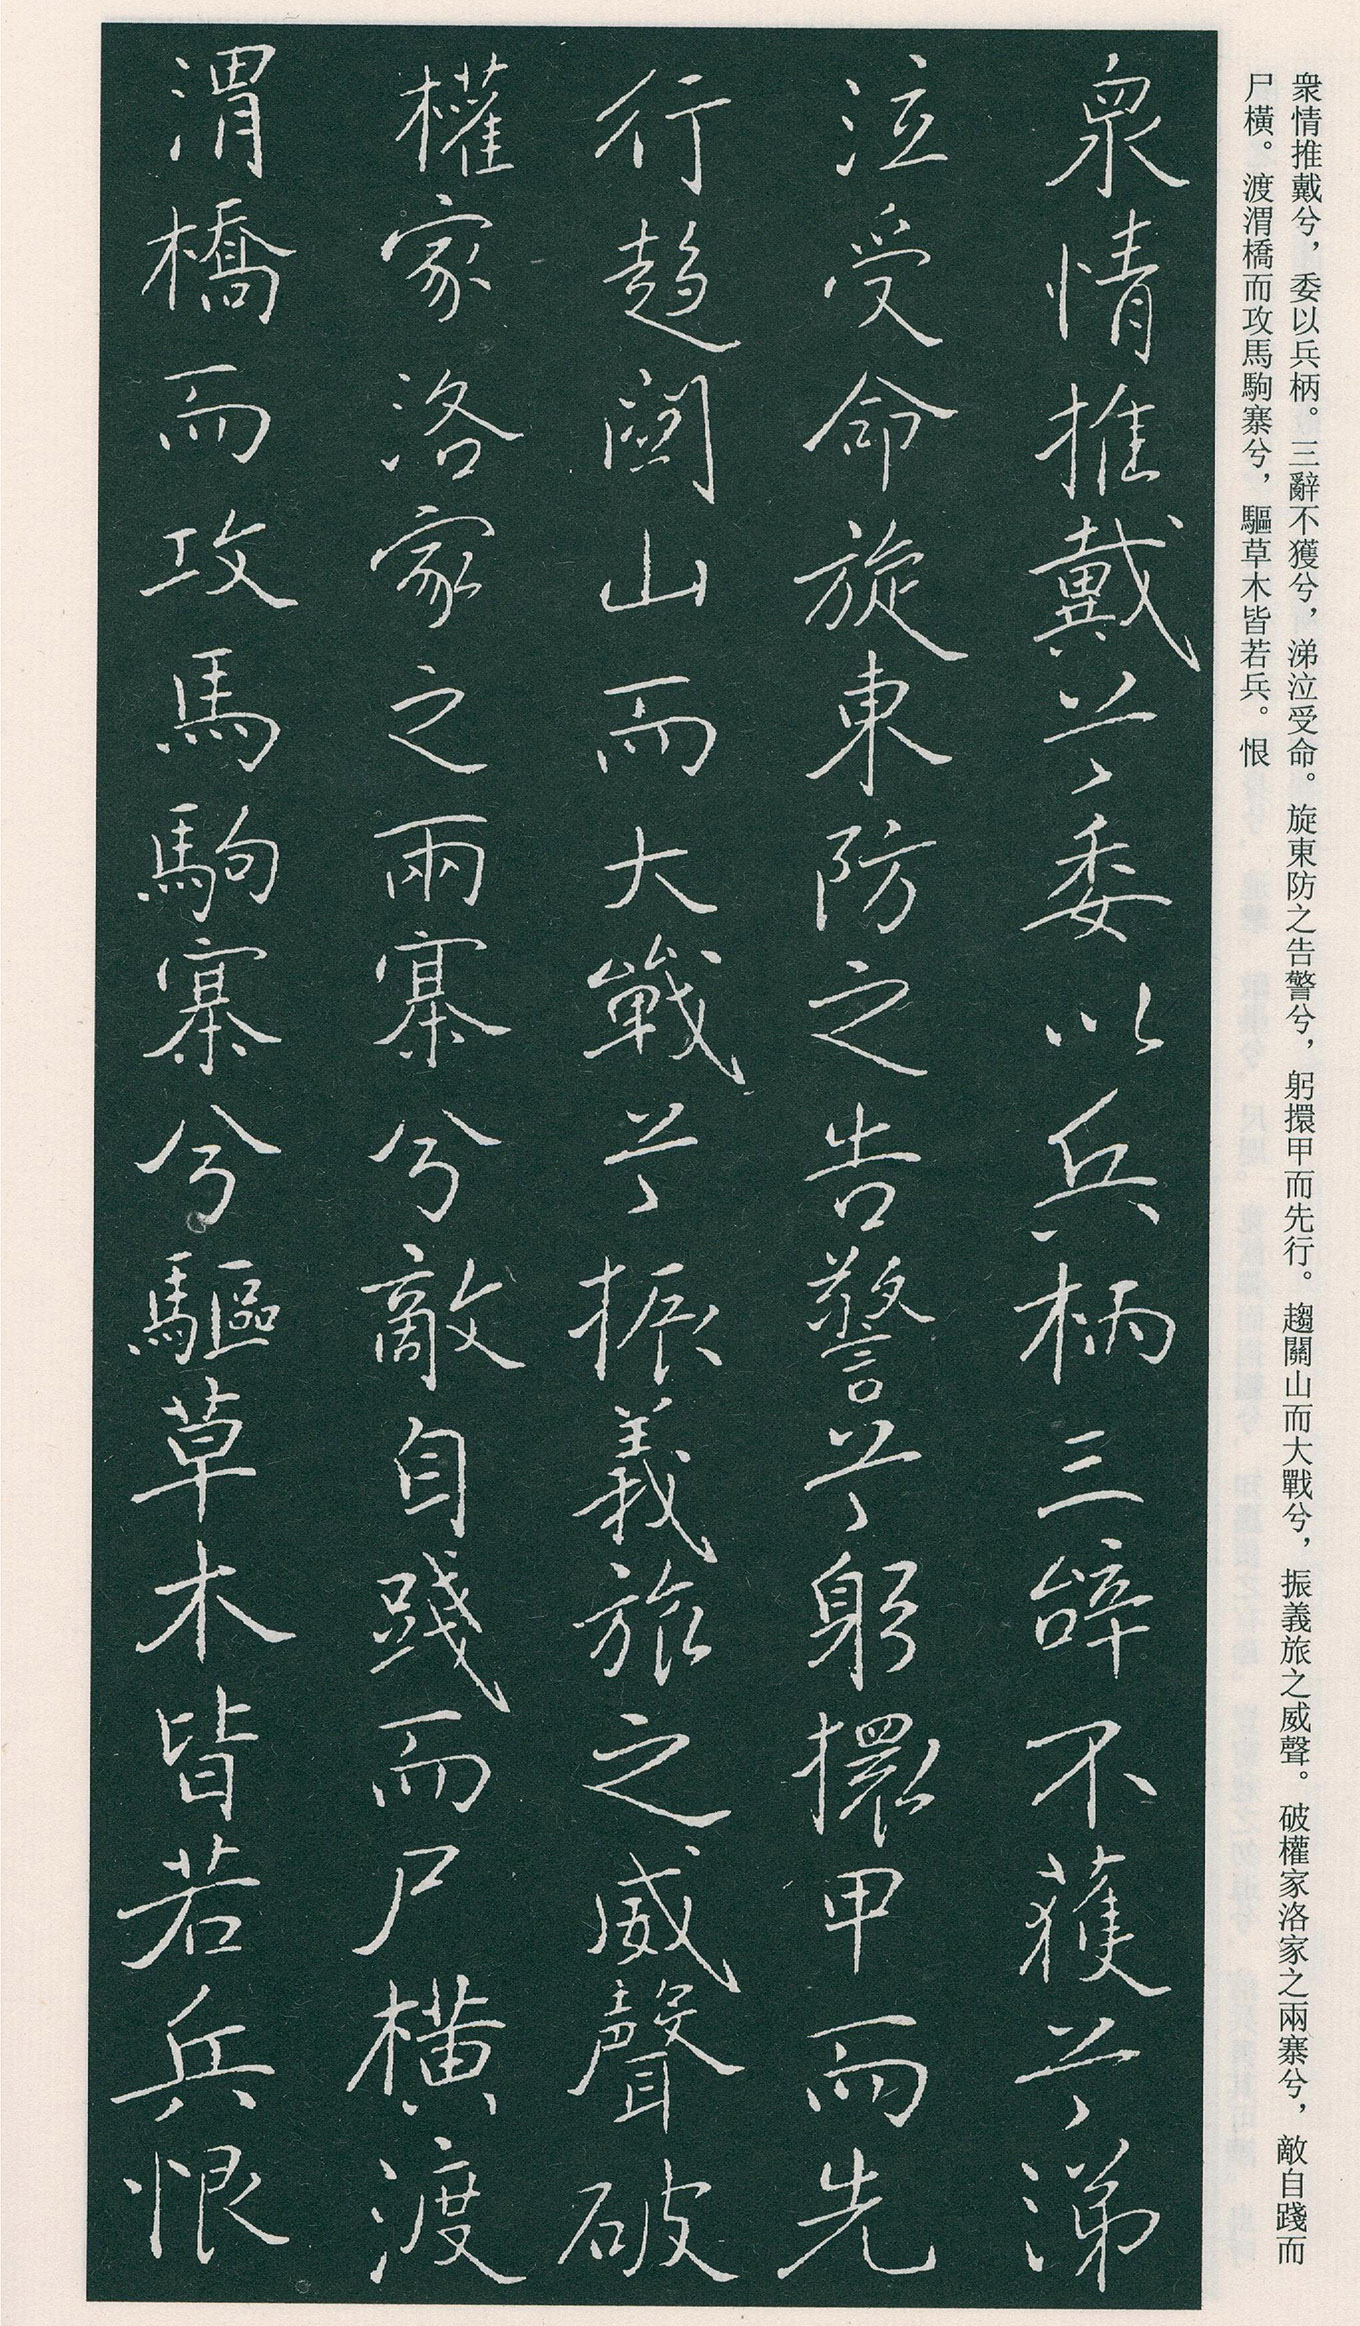 衆情推戴兮，委以兵柄。三辭不獲兮，涕泣受命。旋東防之告警兮，躬擐甲而先行。趨關山而大戰兮，振義旅之威聲。破權家洛家之兩寨兮，敵自踐而
尸橫。渡渭橋而攻馬駒寨兮，驅草木皆若兵。恨
衆情推戴兮委以兵柄三辭不獲兮涕
泣受命旋東防之告警兮躬擐甲而先
行趨關山而大戰兮振義旅之威聲破
權家洛家之兩寨兮敵自踐而尸橫渡
渭橋而攻馬駒寨兮驅草木皆若兵恨